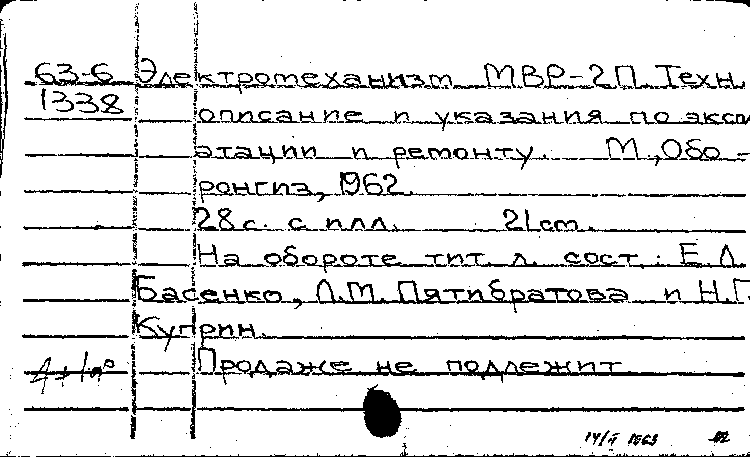 63-6 Электромеханизм МВР-2П. Техн.
1338 описание и указания по эксп
атации и ремонту. М., Обо-
ронгиз, 1962.
28 с. с илл. 21 см.
На обороте тит. л. сост.: Е.Л.
Басенко, Л.М. Пятибратова и Н.Г.
Куприн.
Продаже не подлежит
1963